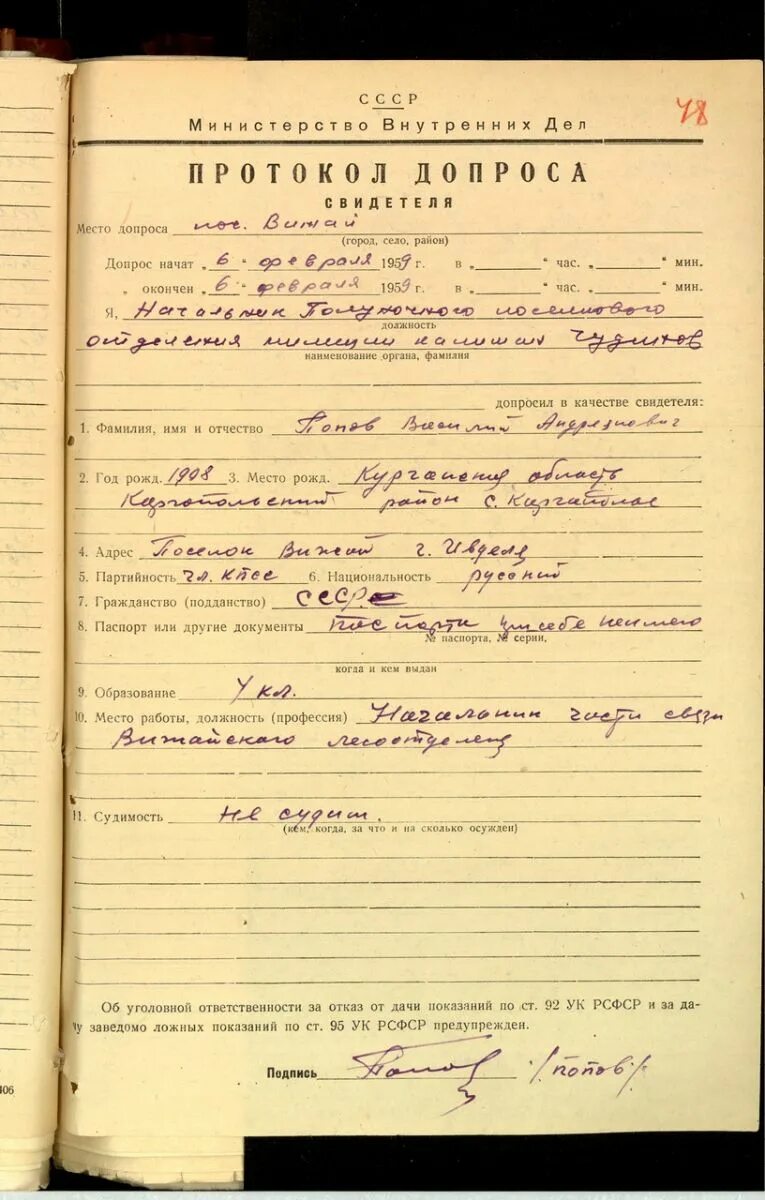 48
СССР
Министерство Внутренних Дел
ПРОТОКОЛ ДОПРОСА
СВИДЕТЕЛЯ
Место допроса пос. Вижай
(город, село, район)
Допрос начат „ 6 “ февраля 1959 г. в „ “ час. „ “ мин.
„ окончен „ 6 “ февраля 1959 г. в „ “ час. „ “ мин.
Я, Начальник Полуночного поселкового
должность
отделения милиции капитан Чудинов
наименование органа, фамилия
допросил в качестве свидетеля:
1. Фамилия, имя и отчество Попов Василий Андреянович
2. Год рожд. 1908 3. Место рожд. Курганская область
Каргопольский район с. Каргополье
4. Адрес Поселок Вижай г. Ивделя
5. Партийность чл. КПСС 6. Национальность русский
7. Гражданство (подданство) СССР
8. Паспорт или другие документы паспорта при себе не имею
№ паспорта, № серии,
когда и кем выдан
9. Образование 4 кл.
10. Место работы, должность (профессия) Начальник части связи
Вижайского
11. Судимость Не судим.
(кем, когда, за что и на сколько осужден)
Об уголовной ответственности за отказ от дачи показаний по ст. 92 УК РСФСР и за да-
чу заведомо ложных показаний по ст. 95 УК РСФСР предупрежден.
Подпись Попов /попов/
406